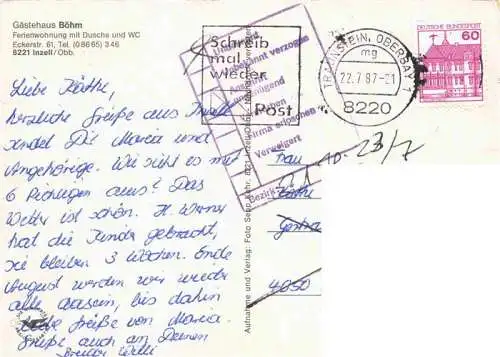 Gästehaus Böhm
Ferienwohnung mit Dusche und WC
Eckerstr. 61, Tel. (0 86 65) 3 46
8221 Inzell/Obb.
Liebe Käthe,
herzliche Grüße aus Inzell
sendet Dir Maria und
Angehörige. Wie sieht es mit
aus? Das
Wetter ist schön. H. Werner
hat die Kinder gebracht,
sie bleiben 3 Wochen. Ende
August werden wir wieder
alle daheim, bis dahin
Liebe Grüße von Maria.
Grüße auch an Deinen
Bruder Willi
Schreib
mal
wieder
Post
TRAUNSTEIN, OBERBAY 1
mg
22.7.87-21
8220
DEUTSCHE BUNDESPOST
60
unbekannt verzogen
Firma erloschen
Verweigert
Bezirk
23/7
Frau
4050
Aufnahme und Verlag: Foto Sepp Kehr, 8221 Inzell/Obb.